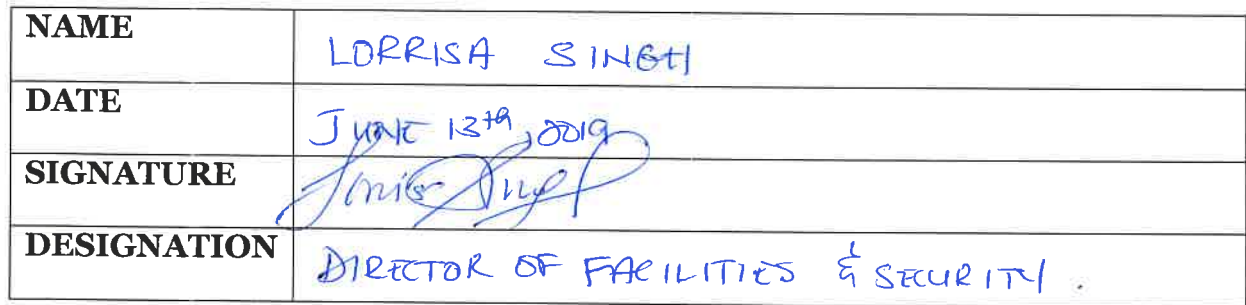 NAME LORRISA SINGH
DATE JUNE 13th, 2019
SIGNATURE
DESIGNATION DIRECTOR OF FACILITIES & SECURITY.